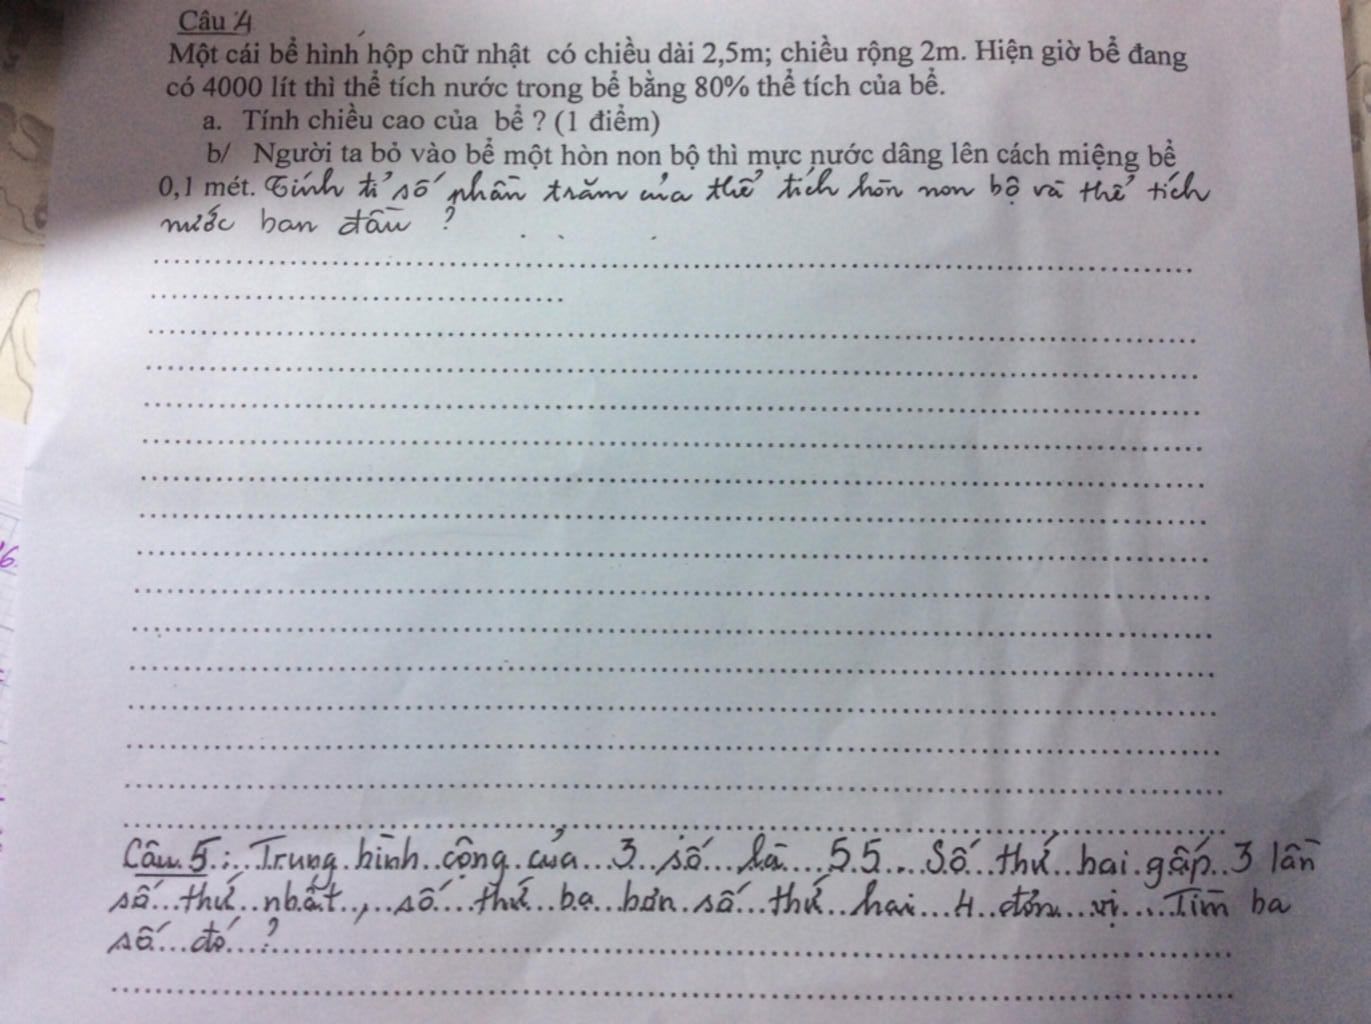 Câu 4
Một cái bể hình hộp chữ nhật có chiều dài 2,5m; chiều rộng 2m. Hiện giờ bể đang
có 4000 lít thì thể tích nước trong bể bằng 80% thể tích của bể.
a. Tính chiều cao của bể ? (1 điểm)
b/ Người ta bỏ vào bể một hòn non bộ thì mực nước dâng lên cách miệng bể
0,1 mét. Tính tỉ số phần trăm của thể tích hòn non bộ và thể tích
nước ban đầu ?
Câu 5: Trung bình cộng của 3 số là 55. Số thứ hai gấp 3 lần
số thứ nhất, số thứ ba hơn số thứ hai 4 đơn vị. Tìm ba
số đó ?